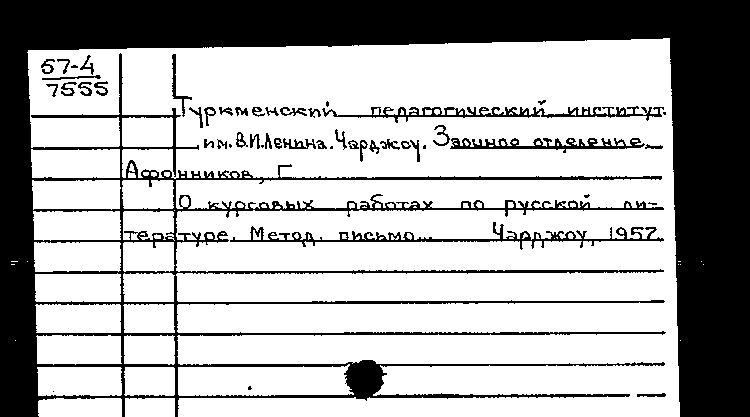 57-4
7555
Туркменский педагогический институт
им. В.И.Ленина. Чарджоу. Заочное отделение.
Афонников, Г
О курсовых работах по русской ли-
тературе. Метод. письмо... Чарджоу, 1957